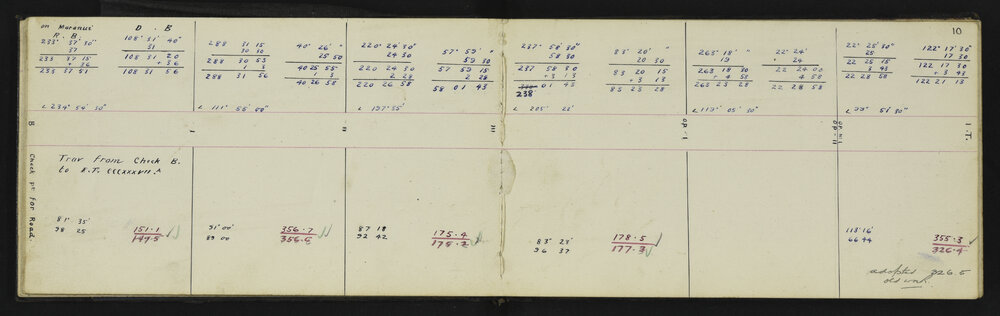 10
on Moranui
R. B.
D. B
233° 37' 30"
37
233 37 15
+ 36
233 37 51
108° 31' 40"
31
108 31 20
+ 36
108 31 56
288 31 15
30 30
288 30 53
1 3
288 31 56
40° 26' "
25 50
40 25 55
1 3
40 26 58
220° 24' 30"
24 30
220 24 30
2 28
220 26 58
57° 59' "
59 30
57 59 15
2 28
58 01 43
237° 58' 30"
58 30
237 58 30
+3 13
238 01 43
83° 20' "
20 30
83 20 15
+3 13
83 23 28
263° 18' "
19
263 18 30
+4 58
263 23 28
22° 24'
24
22 24 00
4 58
22 28 58
22° 25' 30"
25
22 25 15
3 43
22 28 58
122° 17' 30"
17 30
122 17 30
+3 43
122 21 13
L 234° 54' 30"
L 111° 55'
L 197° 35'
L 205° 22'
L 119° 05' 30"
L 99° 51' 30"
B
I
II
III
OP. I
OP. II
I. T.
Check pt for Road.
Trav from Check B.
to I.T. CCCXXXVII.
81° 35'
98 25
151.1
91° 00'
89 00
356.7
356.5
87 18
92 42
175.4
175.2
83° 23'
96 37
178.5
177.3
113° 16'
66 44
355.3
326.4
adopted 326.5
old work.